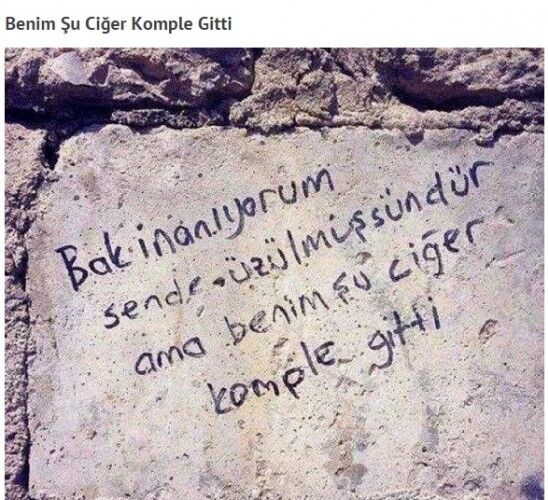 Benim Şu Ciğer Komple Gitti
Bak inanıyorum
sende üzülmüşsündür
ama benim şu ciğer
komple gitti